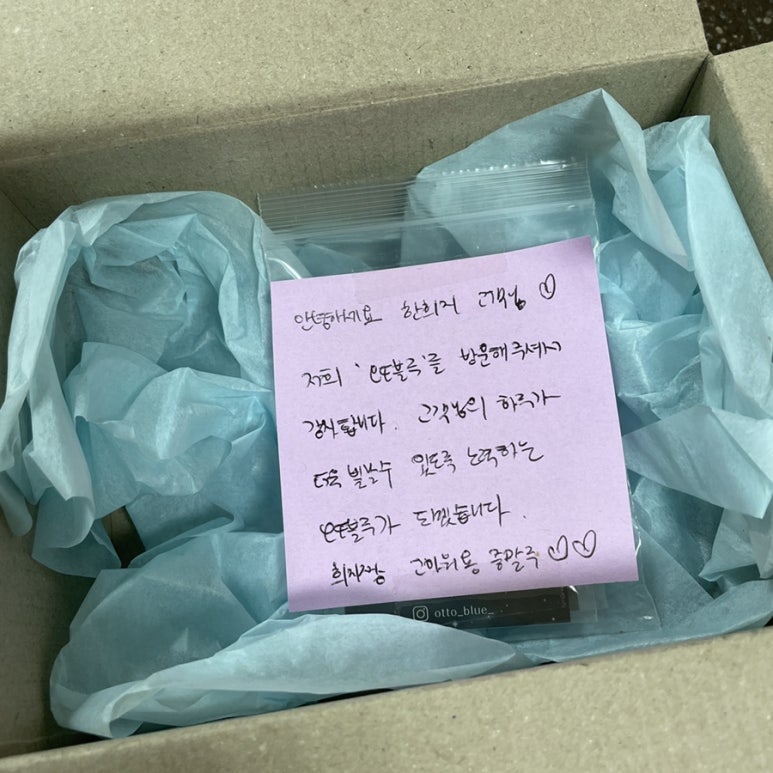 안녕하세요 한희지 고객님 ♡
저희 '오또블루'를 방문해주셔서
감사합니다. 고객님의 하루가
더욱 빛날수 있도록 노력하는
오또블루가 되겠습니다.
희지짱 고마워용 증말루 ♡♡
otto_blue_